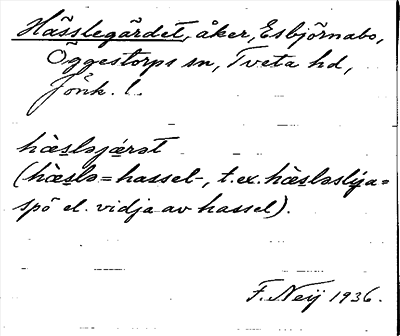 Hässlegärdet, åker, Esbjörnabo,
Öggestorps sn, Tveta hd,
Jönk. l.
hæslәjærәt
(hæslә = hassel-, t.ex. hæslәslýa =
spö el. vidja av hassel).
F. Neij 1936.